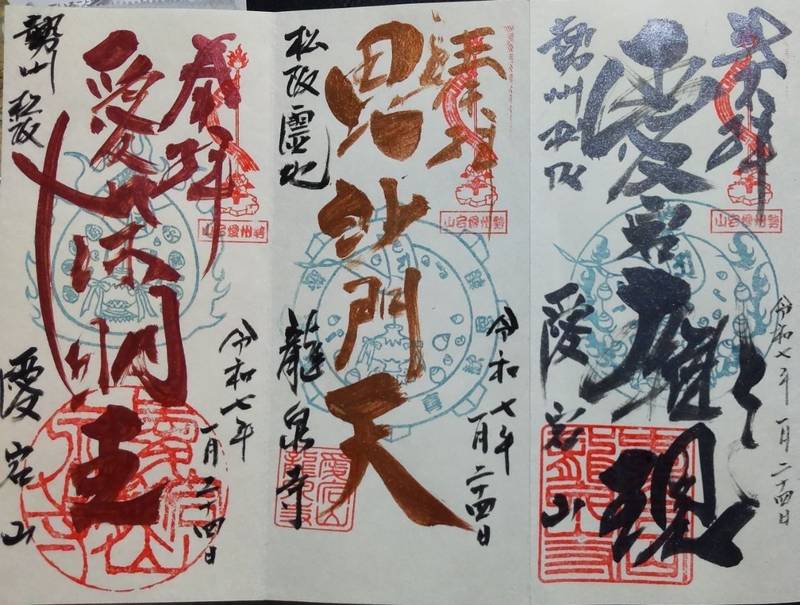 奉拝
愛染明王
勢州 松阪
令和七年
一月二十四日
愛宕山
勢州愛宕山
奉拝
毘沙門天
松阪霊地
令和七年
一月二十四日
龍泉寺
勢州愛宕山
奉拝
愛宕大権現
勢州松阪
令和七年 一月二十四日
愛宕山
勢州愛宕山